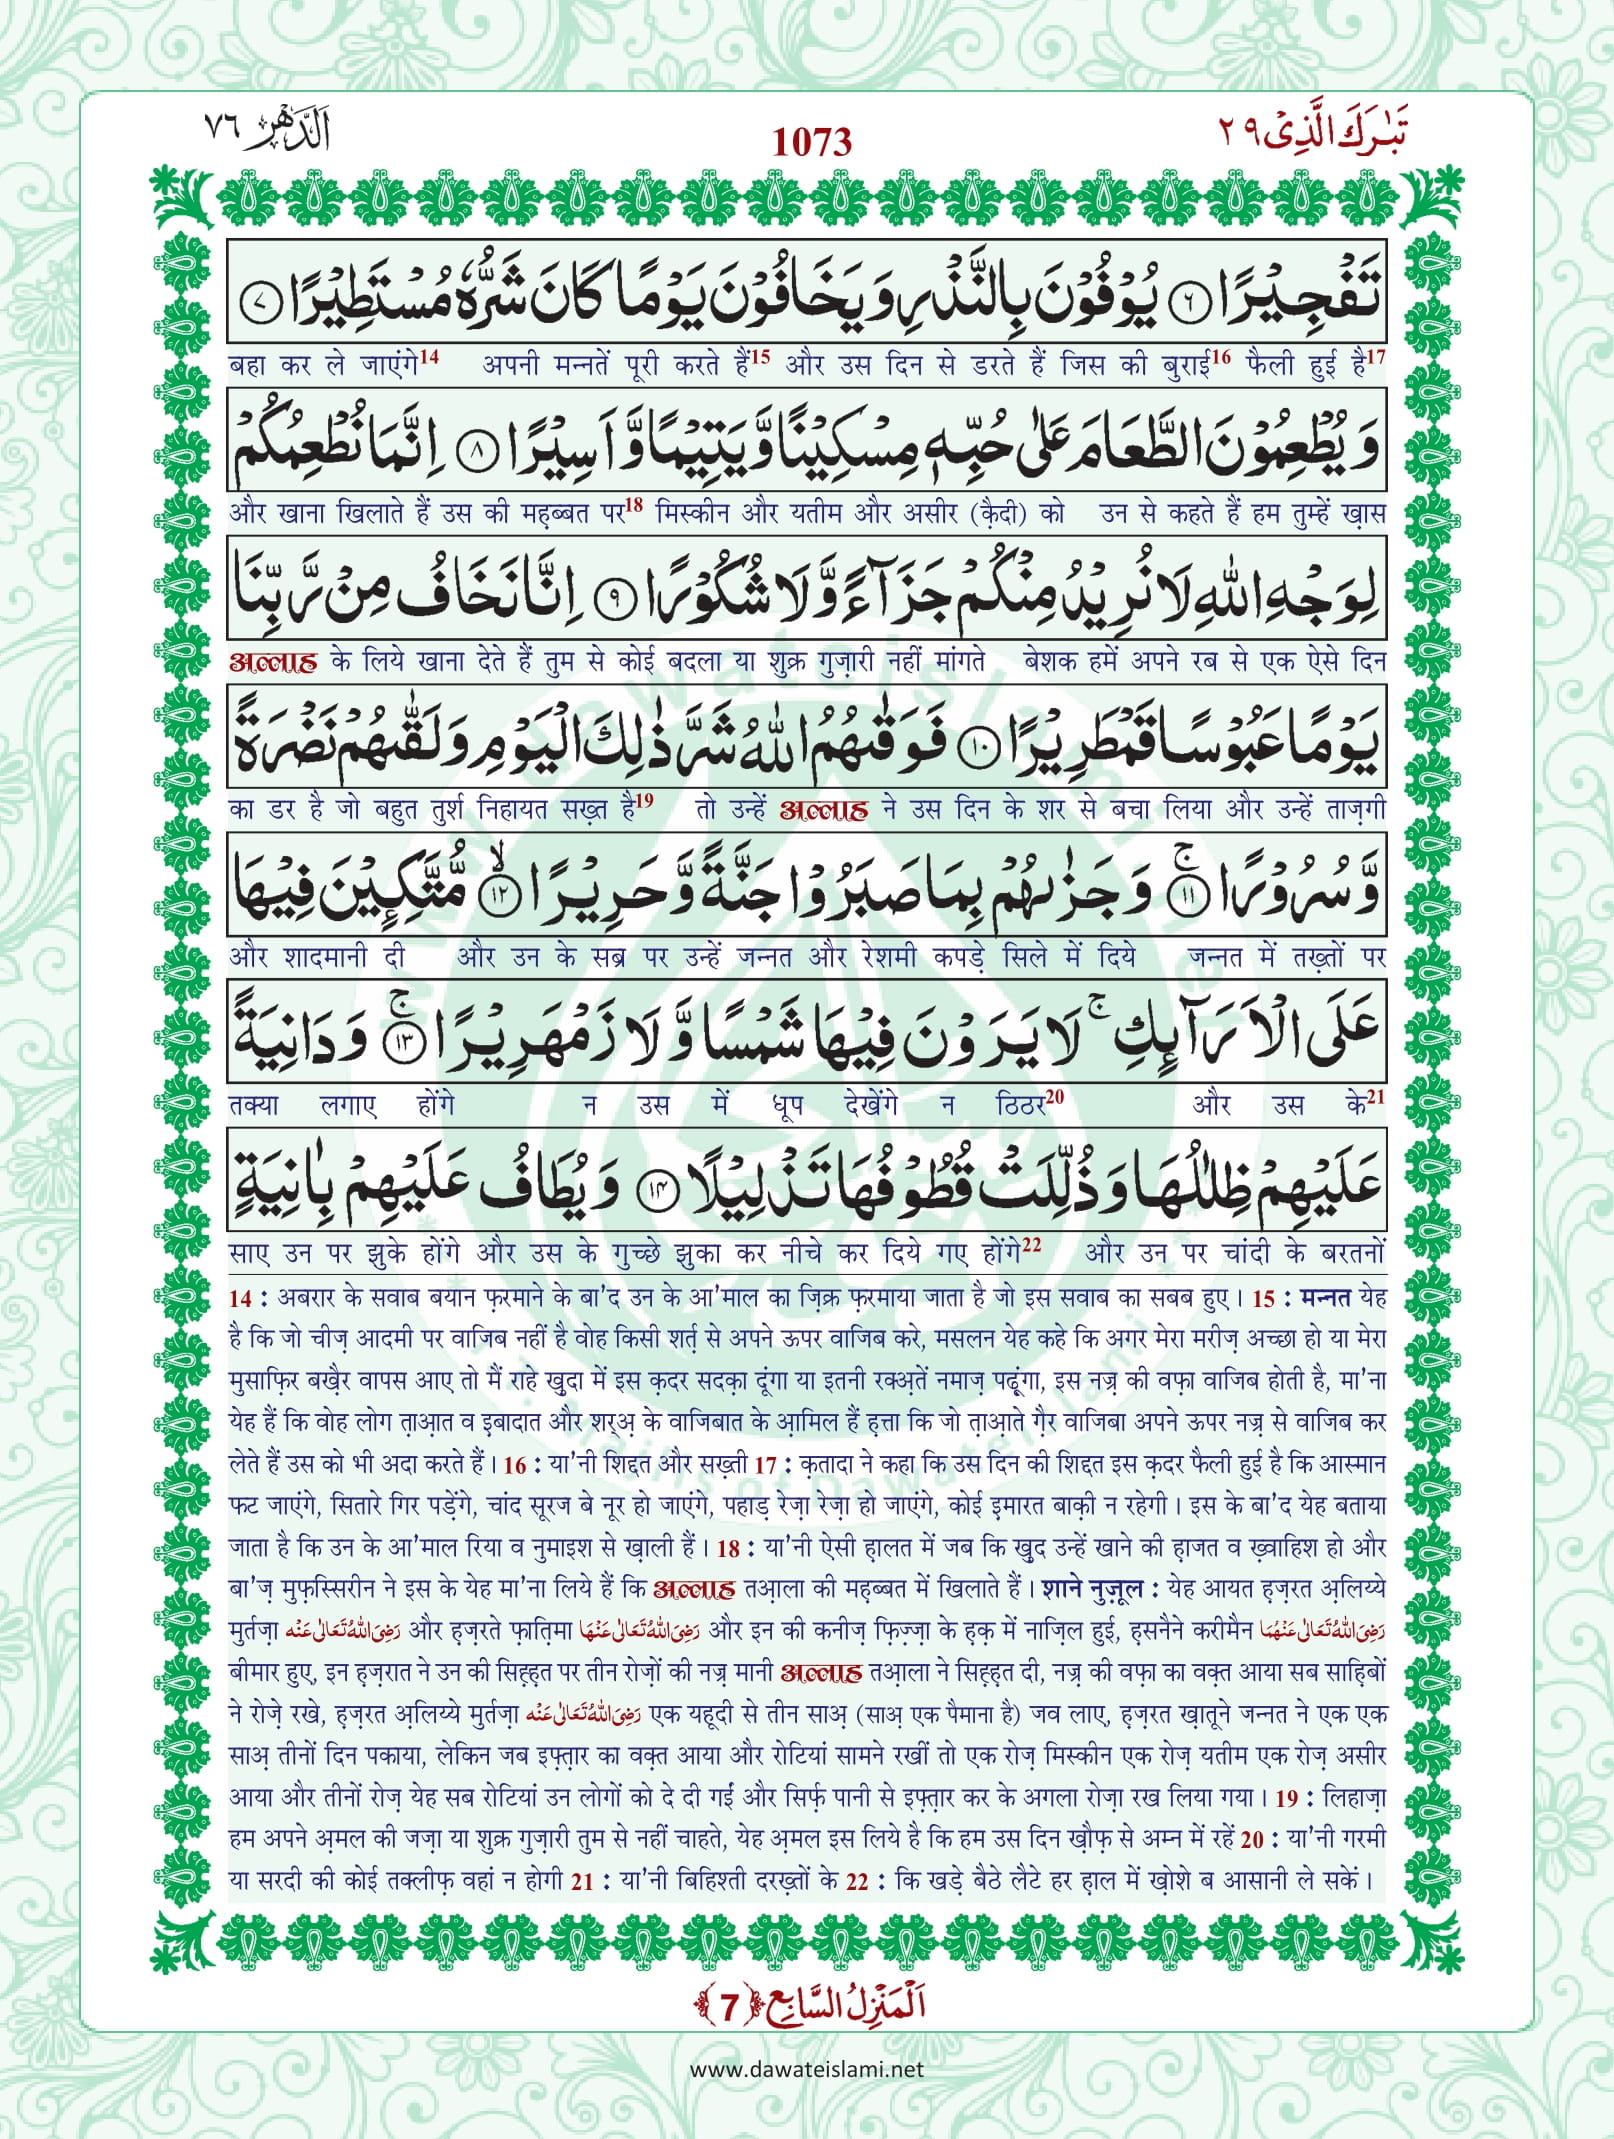 اَلدَّهْر ٧٦
1073
تَبٰرَكَ الَّذِیْ ٢٩
تَفْجِیْرًا ﴿٦﴾ یُوْفُوْنَ بِالنَّذْرِ وَ یَخَافُوْنَ یَوْمًا كَانَ شَرُّهٗ مُسْتَطِیْرًا ﴿٧﴾
बहा कर ले जाएंगे14 अपनी मन्नतें पूरी करते हैं15 और उस दिन से डरते हैं जिस की बुराई16 फैली हुई है17
وَ یُطْعِمُوْنَ الطَّعَامَ عَلٰى حُبِّهٖ مِسْكِیْنًا وَّ یَتِیْمًا وَّ اَسِیْرًا ﴿٨﴾ اِنَّمَا نُطْعِمُكُمْ
और खाना खिलाते हैं उस की महब्बत पर18 मिस्कीन और यतीम और असीर (क़ैदी) को उन से कहते हैं हम तुम्हें ख़ास
لِوَجْهِ اللّٰهِ لَا نُرِیْدُ مِنْكُمْ جَزَآءً وَّ لَا شُكُوْرًا ﴿٩﴾ اِنَّا نَخَافُ مِنْ رَّبِّنَا
अल्लाह के लिये खाना देते हैं तुम से कोई बदला या शुक्र गुज़ारी नहीं मांगते बेशक हमें अपने रब से एक ऐसे दिन
یَوْمًا عَبُوْسًا قَمْطَرِیْرًا ﴿١٠﴾ فَوَقٰىهُمُ اللّٰهُ شَرَّ ذٰلِكَ الْیَوْمِ وَ لَقّٰىهُمْ نَضْرَةً
का डर है जो बहुत तुर्श निहायत सख़्त है19 तो उन्हें अल्लाह ने उस दिन के शर से बचा लिया और उन्हें ताज़गी
وَّ سُرُوْرًا ﴿١١﴾ۚ وَ جَزٰىهُمْ بِمَا صَبَرُوْا جَنَّةً وَّ حَرِیْرًا ﴿١٢﴾ۙ مُّتَّكِـٕیْنَ فِیْهَا
और शादमानी दी और उन के सब्र पर उन्हें जन्नत और रेशमी कपड़े सिले में दिये जन्नत में तख़्तों पर
عَلَى الْاَرَآىٕكِ ۚ لَا یَرَوْنَ فِیْهَا شَمْسًا وَّ لَا زَمْهَرِیْرًا ﴿١٣﴾ۚ وَ دَانِیَةً
तक्या लगाए होंगे न उस में धूप देखेंगे न ठिठर20 और उस के21
عَلَیْهِمْ ظِلٰلُهَا وَ ذُلِّلَتْ قُطُوْفُهَا تَذْلِیْلًا ﴿١٤﴾ وَ یُطَافُ عَلَیْهِمْ بِاٰنِیَةٍ
साए उन पर झुके होंगे और उस के गुच्छे झुका कर नीचे कर दिये गए होंगे22 और उन पर चांदी के बरतनों
14 : अबरार के सवाब बयान फ़रमाने के बा'द उन के आ'माल का ज़िक्र फ़रमाया जाता है जो इस सवाब का सबब हुए। 15 : मन्नत येह
है कि जो चीज़ आदमी पर वाजिब नहीं है वोह किसी शर्त़ से अपने ऊपर वाजिब करे, मसलन येह कहे कि अगर मेरा मरीज़ अच्छा हो या मेरा
मुसाफ़िर बख़ैर वापस आए तो मैं राहे खुदा में इस क़दर सदक़ा दूंगा या इतनी रक्अ़तें नमाज़ पढ़ूंगा, इस नज़्र की वफ़ा वाजिब होती है, मा'ना
येह हैं कि वोह लोग त़ाआ़त व इबादात और शर्अ़ के वाजिबात के आ़मिल हैं ह़त्ता कि जो त़ाआ़ते ग़ैर वाजिबा अपने ऊपर नज़्र से वाजिब कर
लेते हैं उस को भी अदा करते हैं। 16 : या'नी शिद्दत और सख़्ती 17 : क़तादा ने कहा कि उस दिन की शिद्दत इस क़दर फैली हुई है कि आस्मान
फट जाएंगे, सितारे गिर पड़ेंगे, चांद सूरज बे नूर हो जाएंगे, पहाड़ रेज़ा रेज़ा हो जाएंगे, कोई इमारत बाक़ी न रहेगी। इस के बा'द येह बताया
जाता है कि उन के आ'माल रिया व नुमाइश से ख़ाली हैं। 18 : या'नी ऐसी ह़ालत में जब कि खुद उन्हें खाने की ह़ाजत व ख़्वाहिश हो और
बा'ज़ मुफ़स्सिरीन ने इस के येह मा'ना लिये हैं कि अल्लाह तआ़ला की महब्बत में खिलाते हैं। शाने नुज़ूल : येह आयत ह़ज़रत अ़लिय्ये
मुर्तज़ा رَضِیَ اللّٰهُ تَعَالٰی عَنْه और ह़ज़रते फ़ातिमा رَضِیَ اللّٰهُ تَعَالٰی عَنْهَا और इन की कनीज़ फ़िज़्ज़ा के ह़क़ में नाज़िल हुई, ह़सनैने करीमैन رَضِیَ اللّٰهُ تَعَالٰی عَنْهُمَا
बीमार हुए, इन ह़ज़रात ने उन की सिह़्ह़त पर तीन रोज़ों की नज़्र मानी अल्लाह तआ़ला ने सिह़्ह़त दी, नज़्र की वफ़ा का वक़्त आया सब साह़िबों
ने रोज़े रखे, ह़ज़रत अ़लिय्ये मुर्तज़ा رَضِیَ اللّٰهُ تَعَالٰی عَنْه एक यहूदी से तीन साअ़ (साअ़ एक पैमाना है) जव लाए, ह़ज़रत ख़ातूने जन्नत ने एक एक
साअ़ तीनों दिन पकाया, लेकिन जब इफ़्त़ार का वक़्त आया और रोटियां सामने रखीं तो एक रोज़ मिस्कीन एक रोज़ यतीम एक रोज़ असीर
आया और तीनों रोज़ येह सब रोटियां उन लोगों को दे दी गईं और सिर्फ़ पानी से इफ़्त़ार कर के अगला रोज़ा रख लिया गया। 19 : लिहाज़ा
हम अपने अ़मल की जज़ा या शुक्र गुज़ारी तुम से नहीं चाहते, येह अ़मल इस लिये है कि हम उस दिन ख़ौफ़ से अम्न में रहें 20 : या'नी गरमी
या सरदी की कोई तक्लीफ़ वहां न होगी 21 : या'नी बिहिश्ती दरख़्तों के 22 : कि खड़े बैठे लैटे हर ह़ाल में ख़ोशे ब आसानी ले सकें।
اَلْمَنْزِلُ السَّابِع ﴿7﴾
www.dawateislami.net